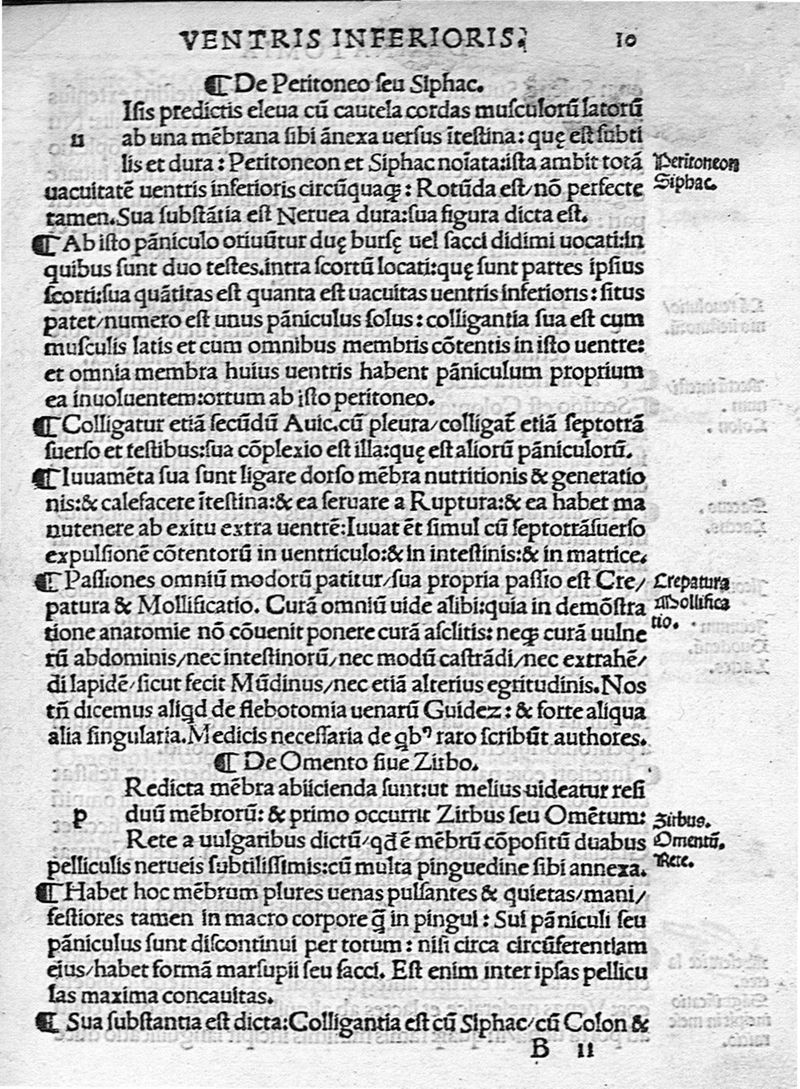 VENTRIS INFERIORIS. 10
⸿ De Peritoneo seu Siphac.
Isis predictis eleua cũ cautela cordas musculorũ latorũ
u ab una mẽbrana sibi ãnexa uersus ĩtestina: quę est subti
lis et dura: Peritoneon et Siphac noĩata: ista ambit totã
uacuitatẽ uentris inferioris circũquaqꝫ: Rotũda est/nõ perfecte
tamen. Sua substãtia est Neruea dura: sua figura dicta est.
⸿ Ab isto pãniculo oriuũtur duę bursę uel sacci didimi uocati: in
quibus sunt duo testes. intra scortũ locati: quę sunt partes ipsius
scorti: sua quãtitas est quanta est uacuitas uentris inferioris: situs
patet/numero est unus pãniculus solus: colligantia sua est cum
musculis latis et cum omnibus membris cõtentis in isto uentre:
et omnia membra huius uentris habent pãniculum proprium
ea inuoluentem: ortum ab isto peritoneo.
⸿ Colligatur etiã secũdũ Auic. cũ pleura/colligat̃ etiã septotrã
suerso et testibus: sua cõplexio est illa: quę est aliorũ pãniculorũ.
⸿ Iuuamẽta sua sunt ligare dorso mẽbra nutritionis & generatio
nis: & calefacere ĩtestina: & ea seruare a Ruptura: & ea habet ma
nutenere ab exitu extra uentrẽ: Iuuat ẽt simul cũ septotrãsuerso
expulsionẽ cõtentorũ in uentriculo: & in intestinis: & in matrice.
⸿ Passiones omniũ modorũ patitur/sua propria passio est Cre/
patura & Mollificatio. Curã omniũ uide alibi: quia in demõstra
tione anatomie nõ cõuenit ponere curã asclitis: neqꝫ curã uulne
rũ abdominis/nec intestinorũ/nec modũ castrãdi/nec extrahẽ/
di lapidẽ/sicut fecit Mũdinus/nec etiã alterius egritudinis. Nos
tñ dicemus aliqd de flebotomia uenarũ Guidez: & forte aliqua
alia singularia. Medicis necessaria de qbꝰ raro scribũt authores.
⸿ De Omento siue Zirbo.
Redicta mẽbra abiicienda sunt: ut melius uideatur resi
p duũ mẽbrorũ: & primo occurrit Zirbus seu Omẽtum:
Rete a uulgaribus dictũ/qđ ẽ mẽbrũ cõpositũ duabus
pelliculis nerueis subtilissimis: cũ multa pinguedine sibi annexa.
⸿ Habet hoc mẽbrum plures uenas pulsantes & quietas/mani/
festiores tamen in macro corpore q̃ in pingui: Sui pãniculi seu
pãniculus sunt discontinui per totum: nisi circa circũferentiam
eius/habet formã marsupii seu sacci. Est enim inter ipsas pellicu
las maxima concauitas.
⸿ Sua substantia est dicta: Colligantia est cũ Siphac/cũ Colon &
B ii
Peritoneon
Siphac.
Crepatura
Mollifica
tio.
Zirbus.
Omentũ.
Rete.